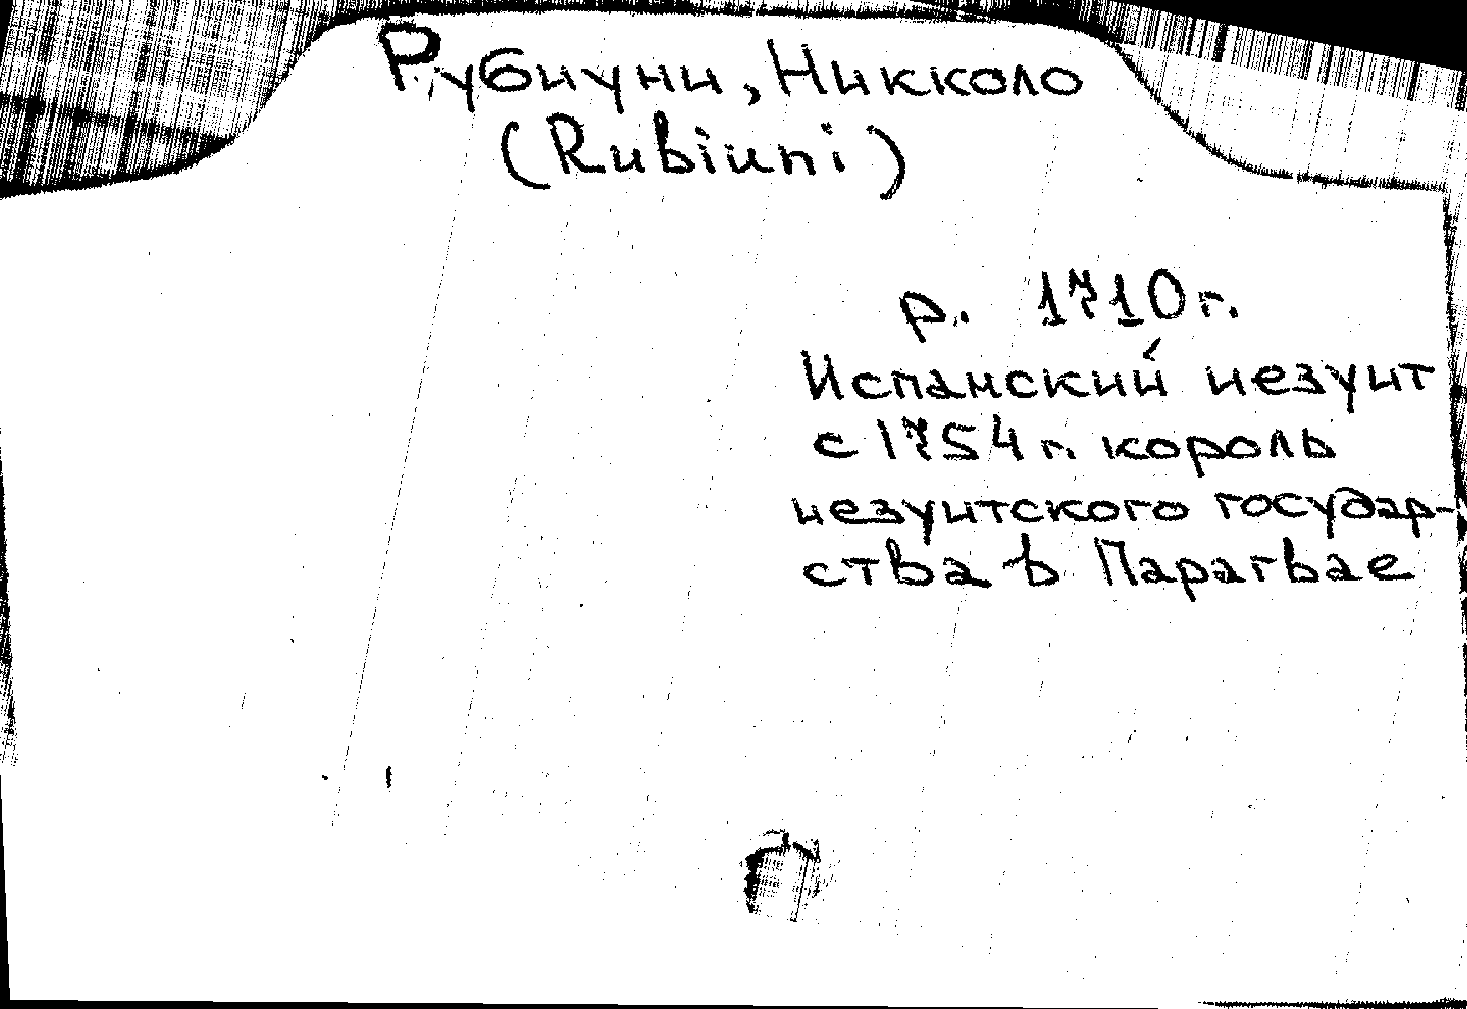 Рубиуни, Никколо
(Rubiuni)
р. 1710 г.
Испанский иезуит
с 1754 г. король
иезуитского государ-
ства в Парагвае